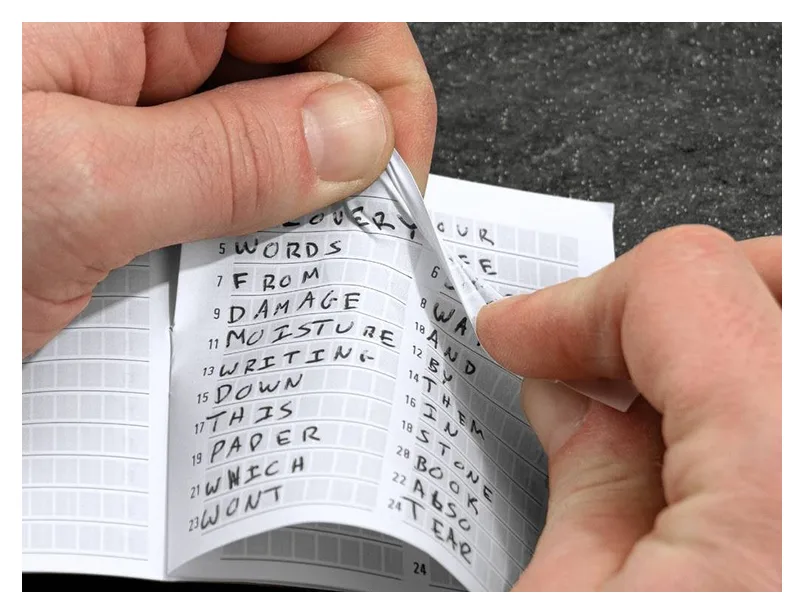 5 WORDS 6
7 FROM 8
9 DAMAGE 10 AND
11 MOISTURE 12 BY
13 WRITING 14 THEM
15 DOWN 16 IN
17 THIS 18 STONE
19 PAPER 20 BOOK
21 WHICH 22 ALSO
23 WONT 24 TEAR
24